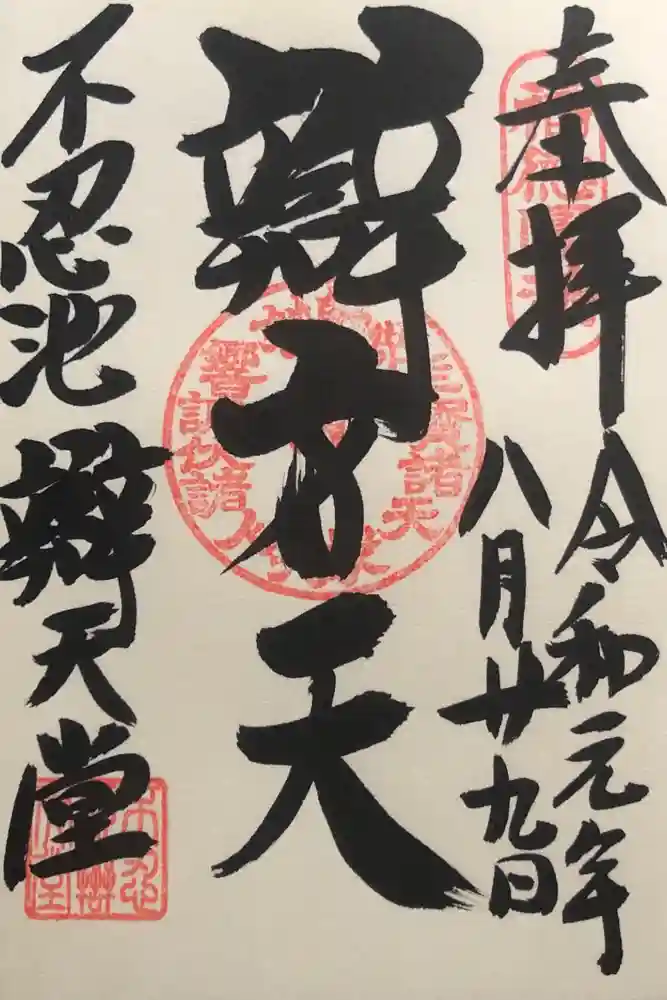 奉拝
令和元年
八月廿九日
辯才天
不忍池辯天堂